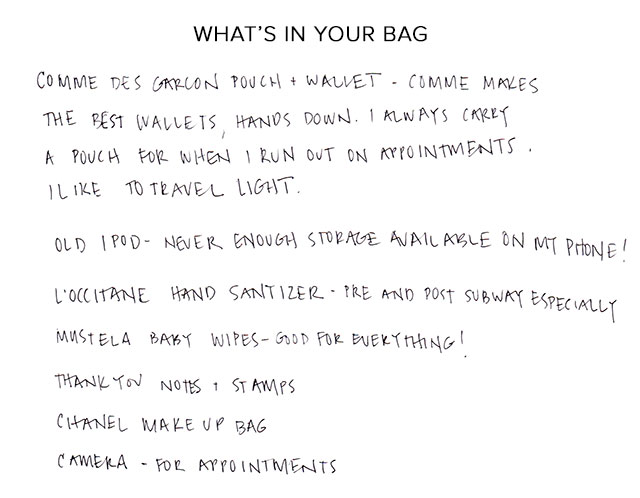 WHAT'S IN YOUR BAG
COMME DES GARCON POUCH + WALLET - COMME MAKES
THE BEST WALLETS, HANDS DOWN. I ALWAYS CARRY
A POUCH FOR WHEN I RUN OUT ON APPOINTMENTS.
I LIKE TO TRAVEL LIGHT.
OLD IPOD- NEVER ENOUGH STORAGE AVAILABLE ON MY PHONE!
L'OCCITANE HAND SANTIZER - PRE AND POST SUBWAY ESPECIALLY
MUSTELA BABY WIPES- GOOD FOR EVERYTHING!
THANK YOU NOTES + STAMPS
CHANEL MAKE UP BAG
CAMERA - FOR APPOINTMENTS